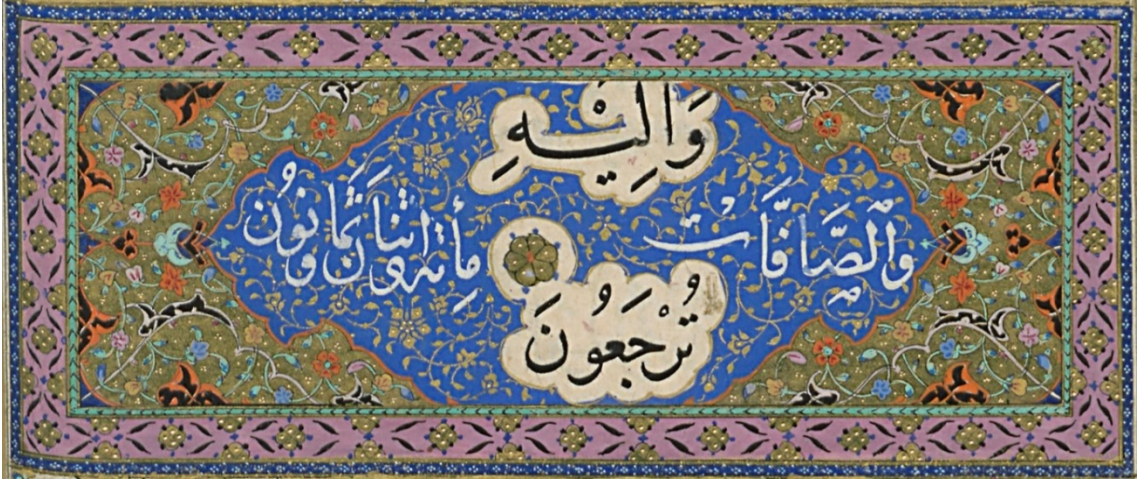 وَإِلَيْهِ
وَٱلصَّافَّات مأئه واثنان ثَمَانُون
تُرْجَعُونَ